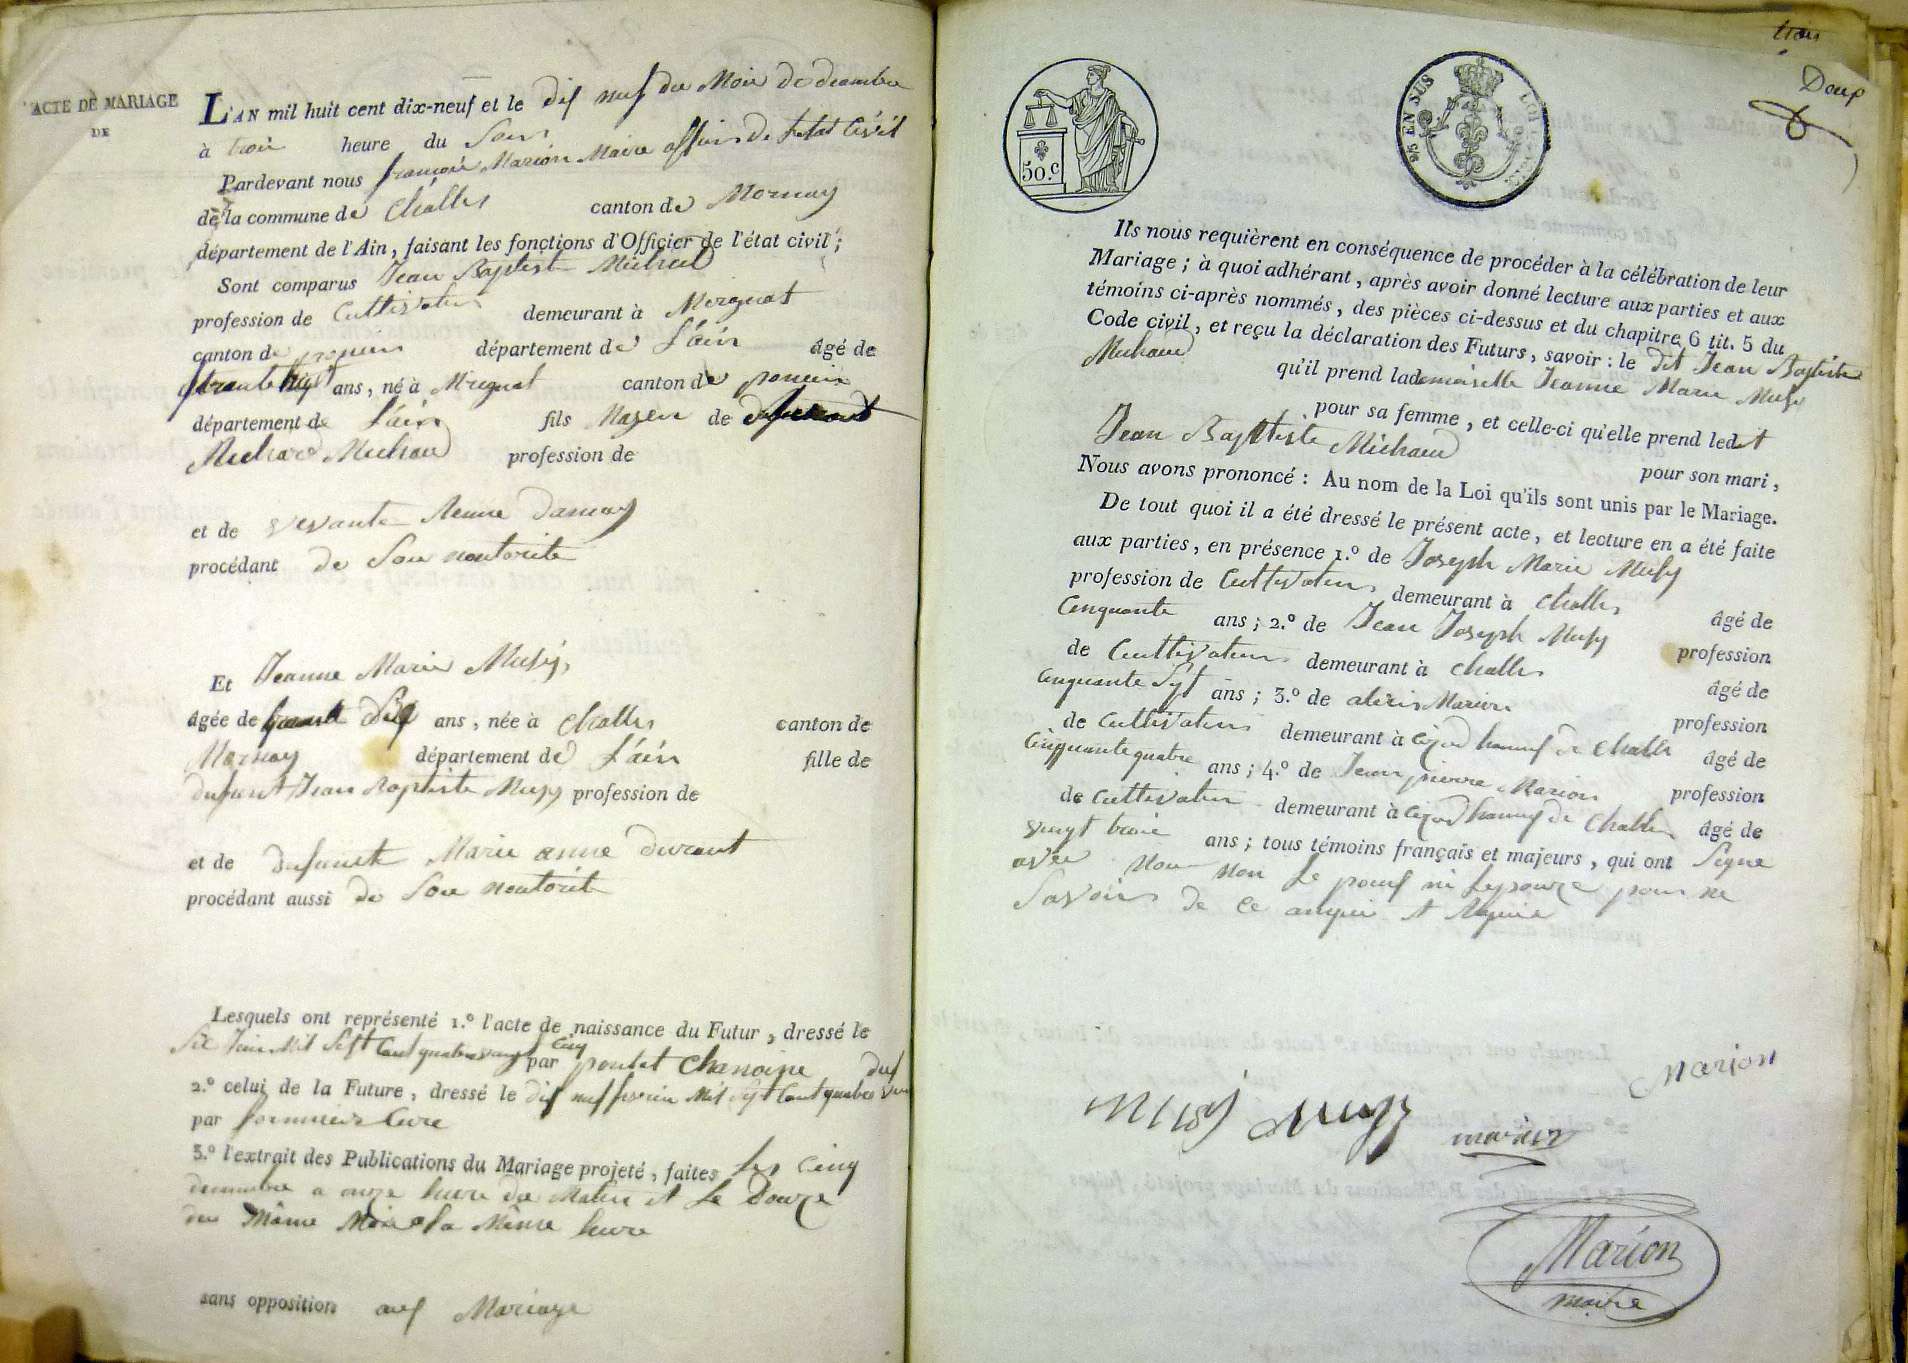 ACTE DE MARIAGE
DE
L'AN mil huit cent dix-neuf et le dis neuf du Mois de decembre
à trois heure du Soir
Pardevant nous françois Marion Maire officier de l'etat Civil
de la commune de Challes canton de Mornay
département de l'Ain, faisant les fonctions d'Officier de l'état civil;
Sont comparus Jean Baptiste Michaud
profession de Cultivateur demeurant à Merignat
canton de poncin département de L'ain âgé de
ans, né à Merignat canton de poncin
département de L'ain fils Majeur de
Michaud profession de
et de vivante damay
procédant de Son
Et Jeanne Marie Musy,
âgée de ans, née à Challes canton de
Mornay département de L'ain fille de
dufunt Jean Baptiste Musy profession de
et de dufunte Marie anne durant
procédant aussi de Son
Lesquels ont représenté 1.º l'acte de naissance du Futur, dressé le
Six Juin Mil Sept Cent quatre vingt Cinq par Chanoine
2.º celui de la Future, dressé le dis neuf fevrier Mil Sept Cent quatre
par Cure
3.º l'extrait des Publications du Mariage projeté, faites Les Cinq
decembre a onze heure du Matin et Le Douze
du Même Mois a la Même heure
sans opposition auf Mariage
trois
Doup
50.c
25 EN SUS
LOI
Ils nous requièrent en conséquence de procéder à la célébration de leur
Mariage; à quoi adhérant, après avoir donné lecture aux parties et aux
témoins ci-après nommés, des pièces ci-dessus et du chapitre 6 tit. 5 du
Code civil, et reçu la déclaration des Futurs, savoir: le dit Jean Baptiste
Michaud qu'il prend lademoiselle Jeanne Marie Musy
pour sa femme, et celle-ci qu'elle prend ledit
Jean Baptiste Michaud pour son mari,
Nous avons prononcé: Au nom de la Loi qu'ils sont unis par le Mariage.
De tout quoi il a été dressé le présent acte, et lecture en a été faite
aux parties, en présence 1.º de Joseph Marie Musy
profession de Cultivateur demeurant à Challes âgé de
Cinquante ans; 2.º de Jean Joseph Musy profession
de Cultivateur demeurant à Challes âgé de
Cinquante Sept ans; 3.º de alexis Marion profession
de Cultivateur demeurant à hameuf de Challes âgé de
Cinquante quatre ans; 4.º de Jean pierre Marion profession
de Cultivateur demeurant à hameuf de Challes âgé de
vingt trois ans; tous témoins français et majeurs, qui ont Signe
avec Nous Non Le poux ni Lepouze pour ne
Savoir de Ce anquis et Requis
Marion
Musy Musy marion
Marion
maire